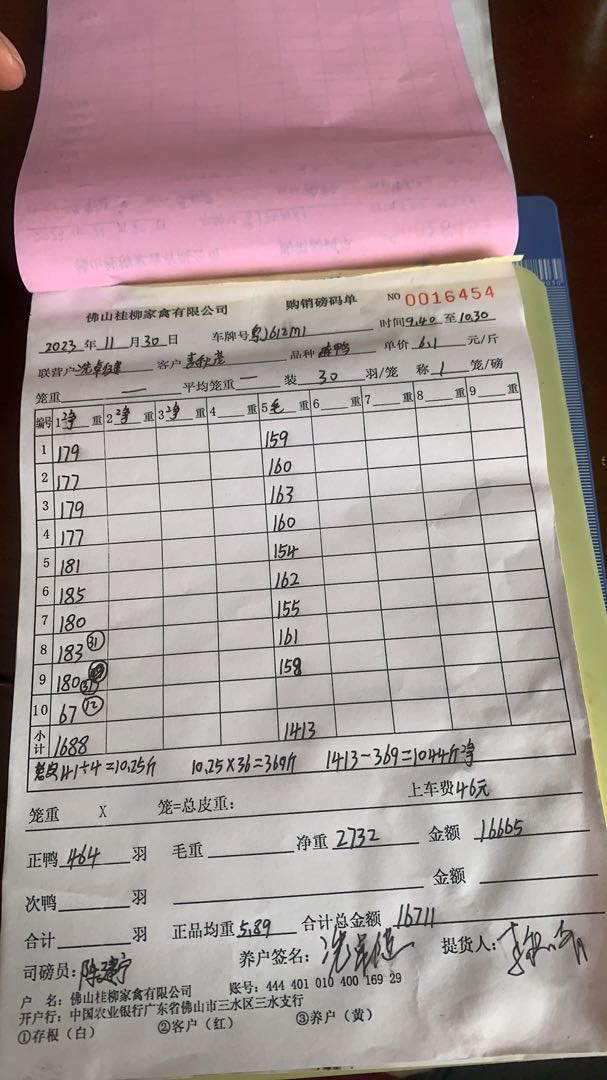 佛山桂柳家禽有限公司 购销磅码单 NO 0016454
2023 年 11 月 30 日 车牌号 粤J612M1 时间 9.40 至 10.30
联营户 冼卓健 客户 品种 鸭 单价 6.1 元/斤
笼重 一 平均笼重 一 装 30 羽/笼 称 1 笼/磅
编号 1 净 重 2 净 重 3 净 重 4 重 5 毛 重 6 重 7 重 8 重 9 重
1 179 159
2 177 160
3 179 163
4 177 160
5 181 154
6 185 162
7 180 155
8 183 31 161
9 180 31 158
10 67 12
小计 1688 1413
皮41÷4=10.25斤 10.25×36=369斤 1413-369=1044斤净
笼重 X 笼=总皮重: 上车费46元
正鸭 464 羽 毛重 净重 2732 金额 16665
次鸭 羽 金额
合计 羽 正品均重 5.89 合计总金额 16711
司磅员: 陈建宁 养户签名: 冼卓健 提货人:
户 名: 佛山桂柳家禽有限公司 账号: 444 401 010 400 169 29
开户行: 中国农业银行广东省佛山市三水区三水支行
①存根(白) ②客户(红) ③养户(黄)